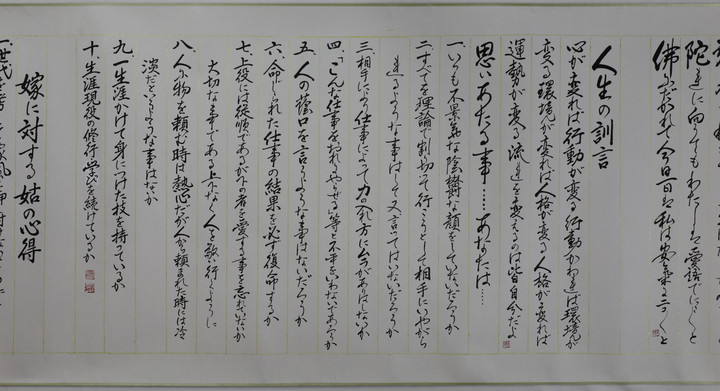 陀に向ってもわたしは愛語でにこにこと
佛にだかれて今日一日は私は安楽に二コニコと
人生の訓言
心が変れば行動が変る行動がかわれば環境が
変る環境が変れば人格が変る人格が変れば
運勢が変る流れを変えるのは皆自分だよ
思いあたる事……あなたは……
一、いつも不景気な陰鬱な顔をしていないだろうか
二、すべてを理論で割切って行こうとして相手にいやがら
れるような事はして又言ってはいないだろうか
三、相手により仕事によって力の入れ方にムラがありはしないか
四、「こんな仕事をおれにやらせる」等と不平をいわないであろうか
五、人の蔭口を言うような事はないだろうか
六、命じられた仕事の結果を必ず復命するか
七、上役には従順であるが下の者を愛する事を忘れてないか
大切な事である上下なく人を敬い行くように
八、人に物を頼む時は熱心だが人から頼まれた時には冷
淡だというような事はないか
九、一生涯かけて身につけた技を持っているか
十、生涯現役の修行学びを続けているか
嫁に対する姑の心得